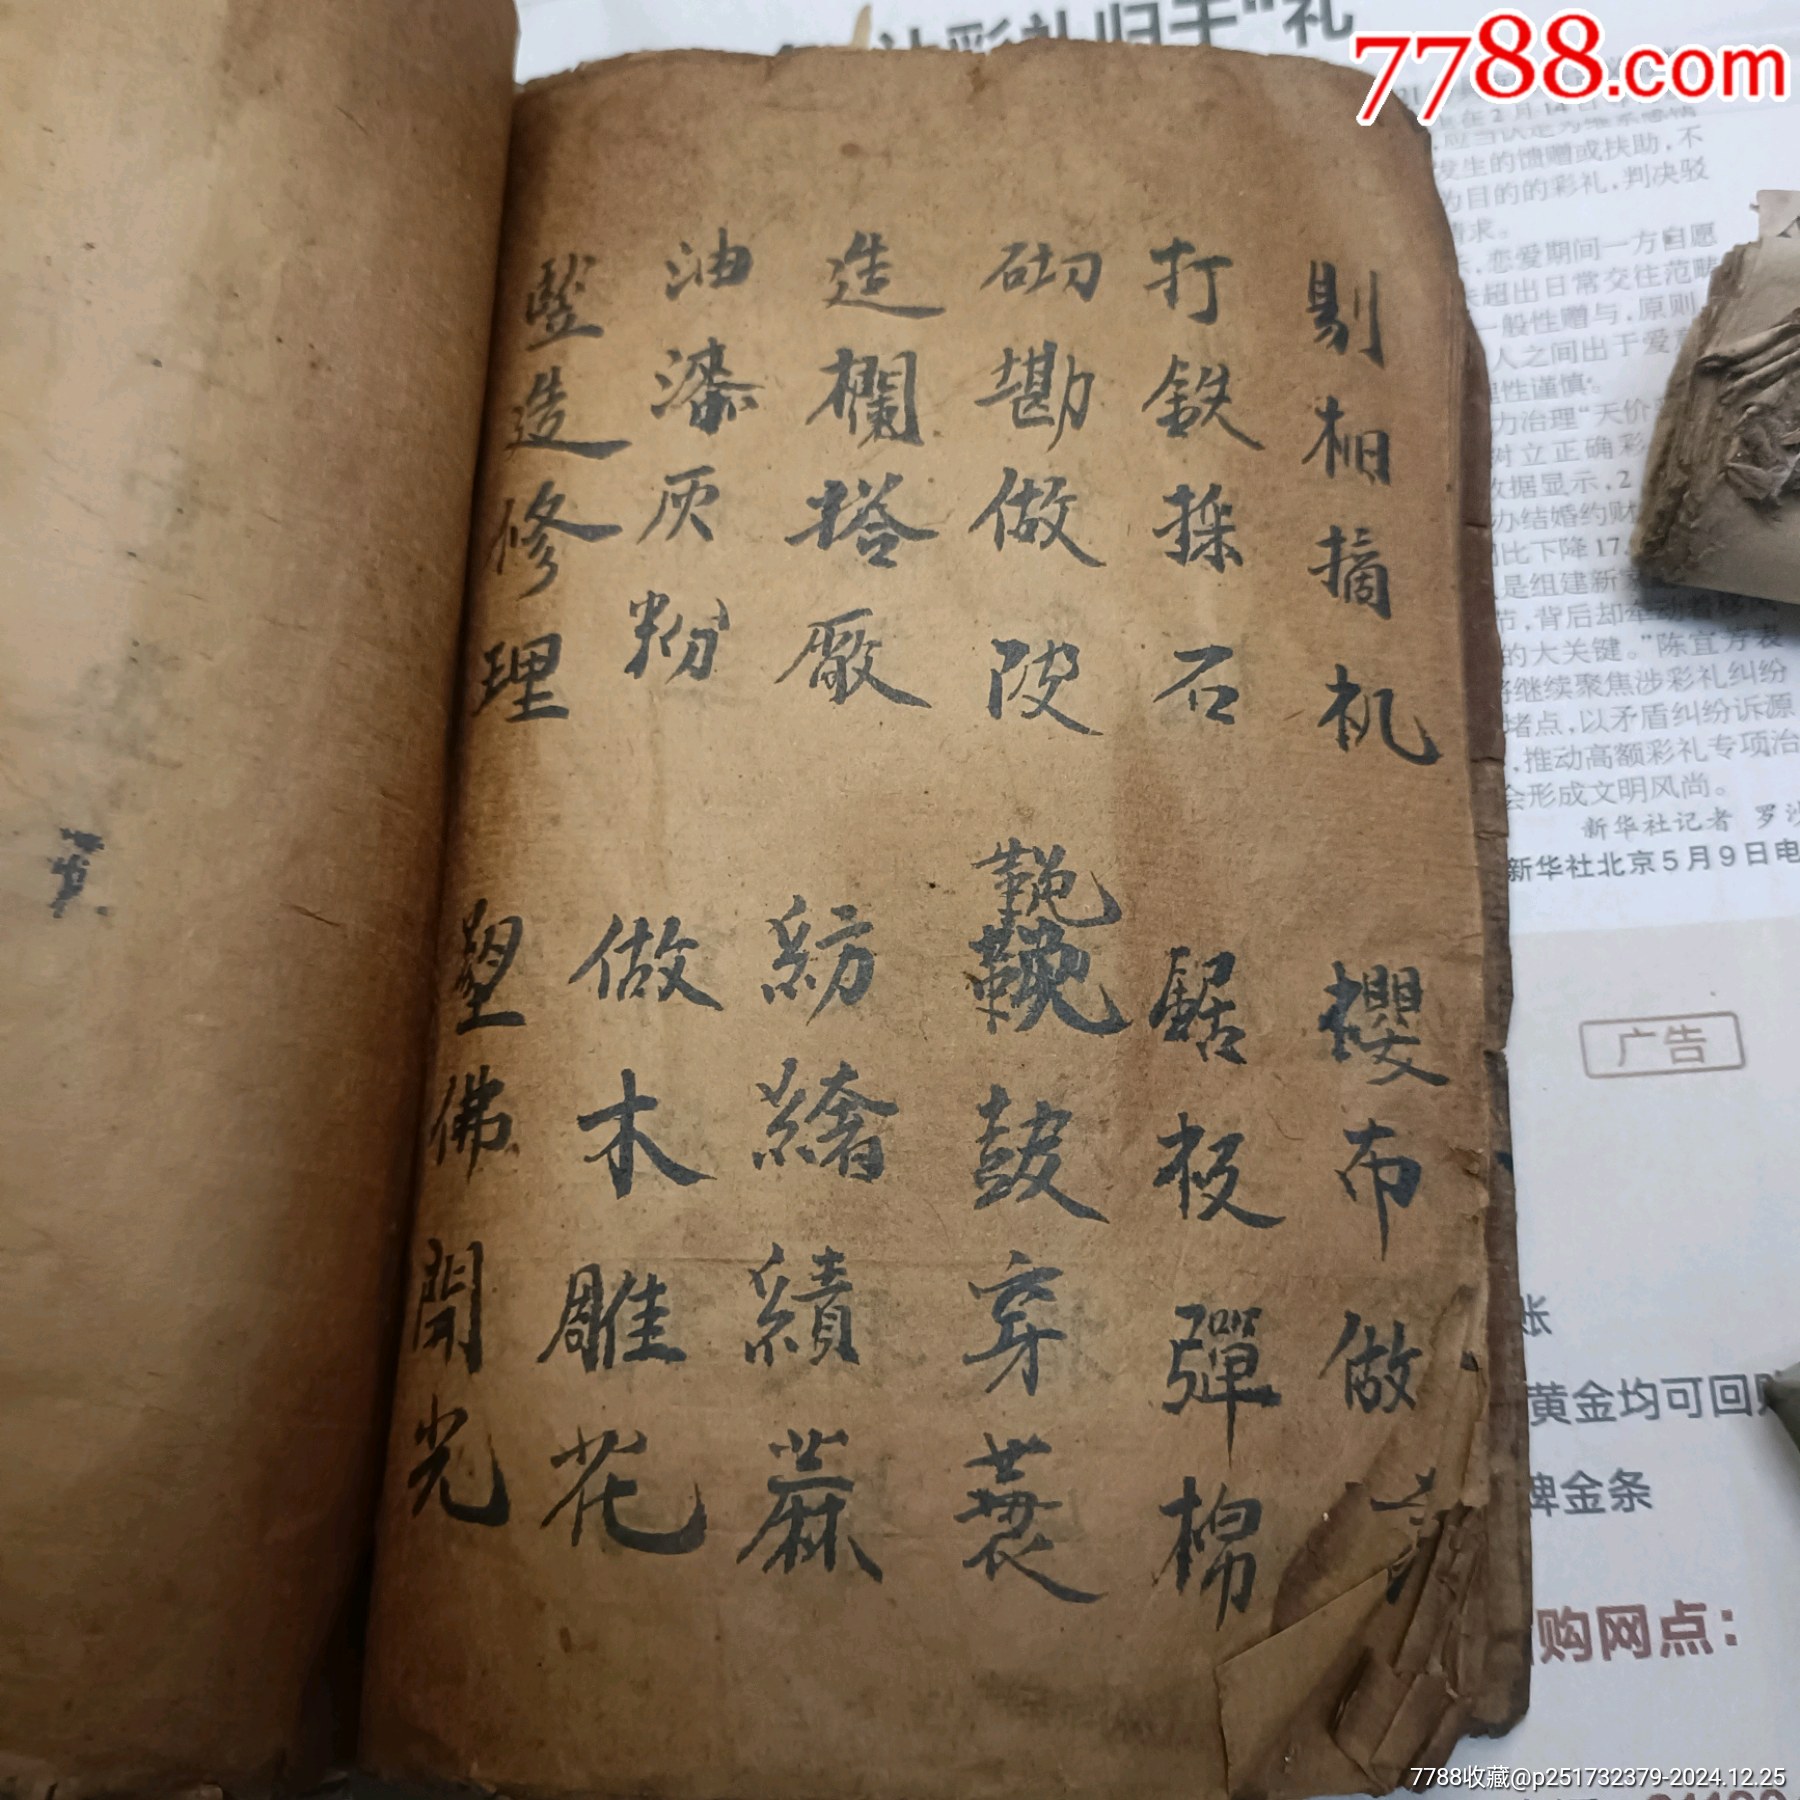 剔相摘机 摆布做
打鉄採石 鋸板彈棉
砌勘做陂 鞔鼓穿蓑
造欄搭厰 紡緒績蔴
油漆灰粉 做木雕花
竪造修理 塑佛開光
7788.com
发生的馈赠或扶助,不
为目的的彩礼,判决驳
恋爱期间一方自愿
超出日常交往范畴
一般性赠与,原则
人之间出于爱意
性谨慎。
力治理"天价
树立正确彩
数据显示,2
办结婚约财
同比下降17.
是组建新家
节,背后却牵动着
的大关键。"陈宜芳表
将继续聚焦涉彩礼纠纷
堵点,以矛盾纠纷诉源
,推动高额彩礼专项治
会形成文明风尚。
新华社记者 罗沙
新华社北京5月9日电
广告
账
黄金均可回购
牌金条
购网点:
7788收藏@p251732379-2024.12.25